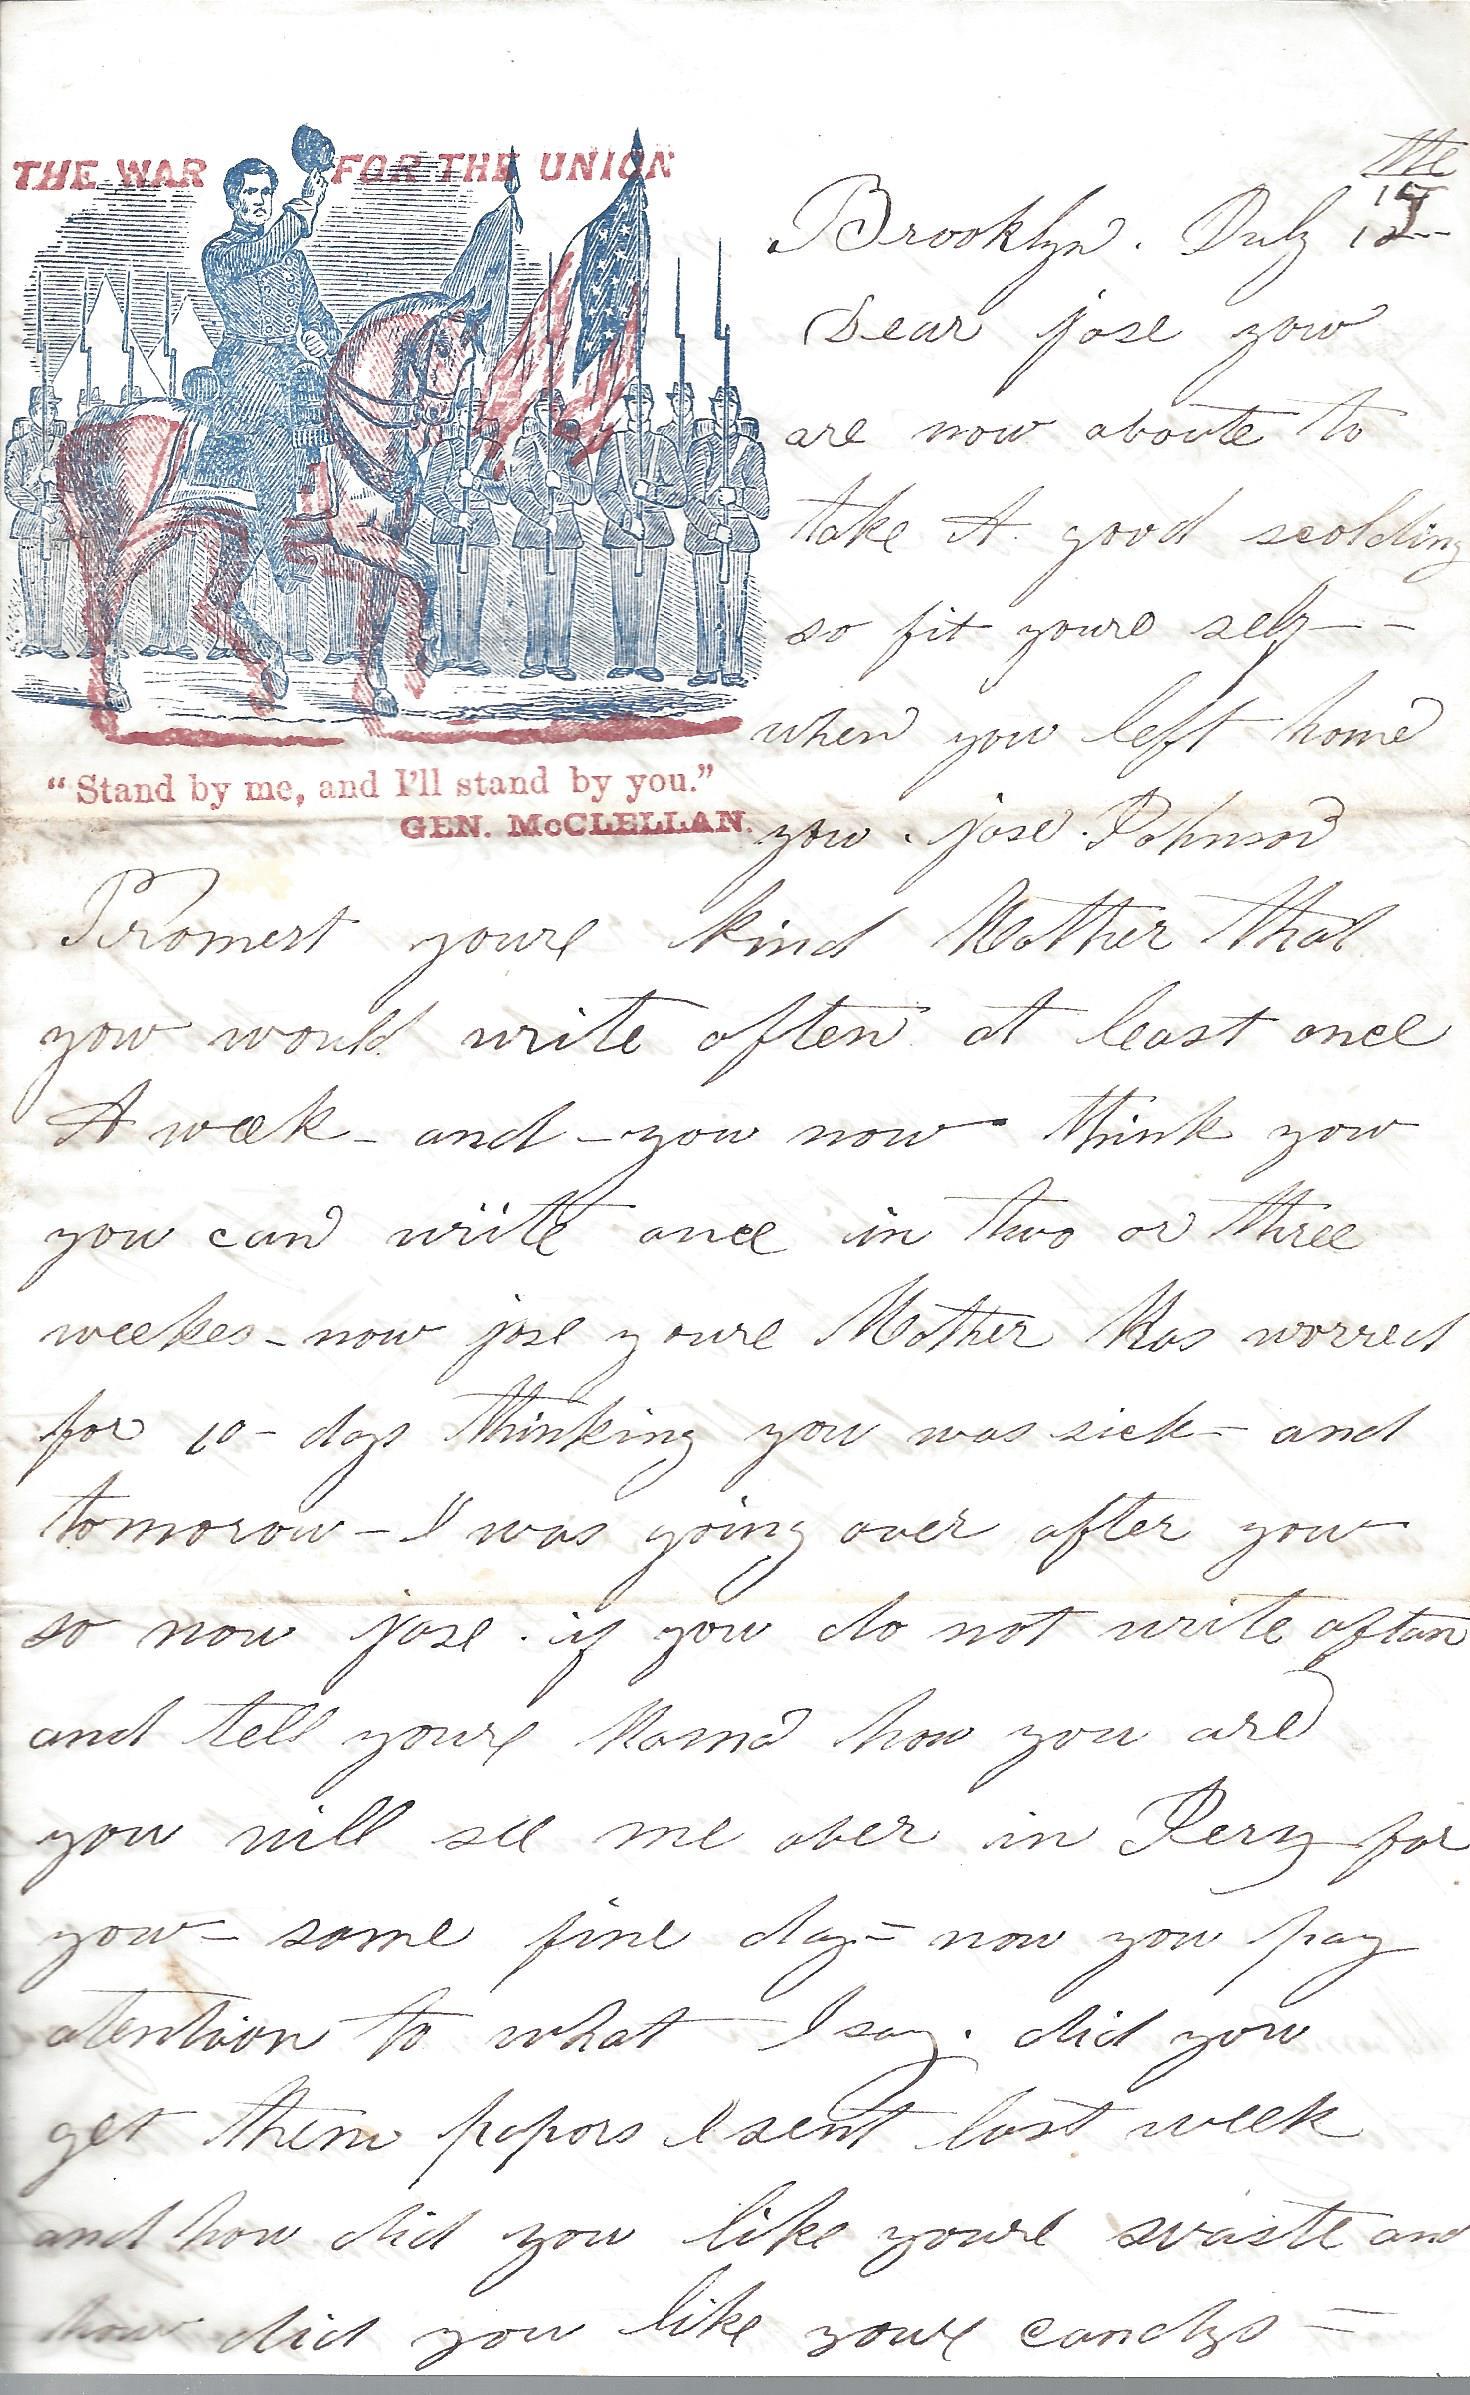 THE WAR FOR THE UNION
"Stand by me, and I'll stand by you."
GEN. McCLELLAN.
the
15
Brooklyn. July 12
Dear jose you
are now aboute to
take A good scolding
so fit youre self - -
when you left home
you . jose . Johnson
Promest youre kind Mother that
you would write often at least once
A week - and - you now think you
you can write once in two or three
weekes - now jose youre Mother Has worred
for 10 - days thinking you was sick - and
tomorow - I was going over after you
so now jose . if you do not write oftan
and tell youre Mama how you are
you will see me over in Jery for
you - some fine day = now you pay
atention to what I say . did you
get them papors I sent last week
and how did you like youre waiste and
how did you like youre candys =